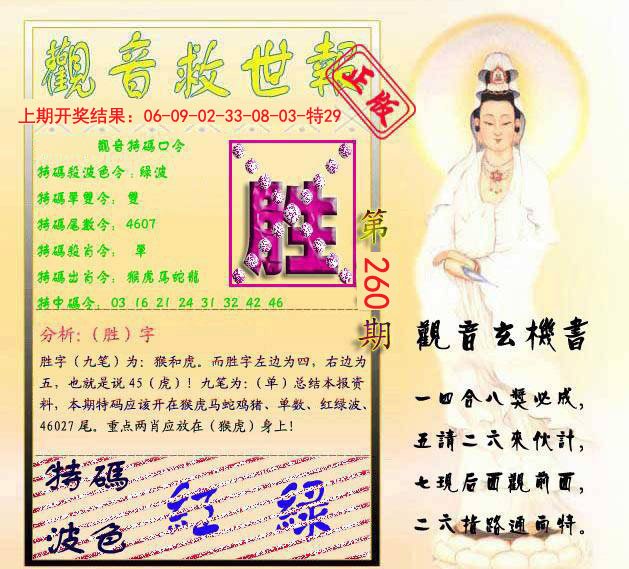 觀音救世報
正版
上期开奖结果：06-09-02-33-08-03-特29
觀音特碼口令
特碼殺波色令：綠波
特碼單雙令： 雙
特碼尾數令： 4607
特碼殺肖令： 單
特碼出肖令： 猴虎馬蛇龍
特中碼令： 03 16 21 24 31 32 42 46
胜
第260期
分析:（胜）字
胜字（九笔）为：猴和虎。而胜字左边为四，右边为
五，也就是说 45（虎）！九笔为：（单）总结本报资
料，本期特码应该开在猴虎马蛇鸡猪、单数、红绿波、
46027 尾。重点两肖应放在（猴虎）身上！
特碼
波色
紅 綠
觀音玄機書
一四合八獎必成，
五請二六來伙計，
七現后面觀前面，
二六指路通而特。